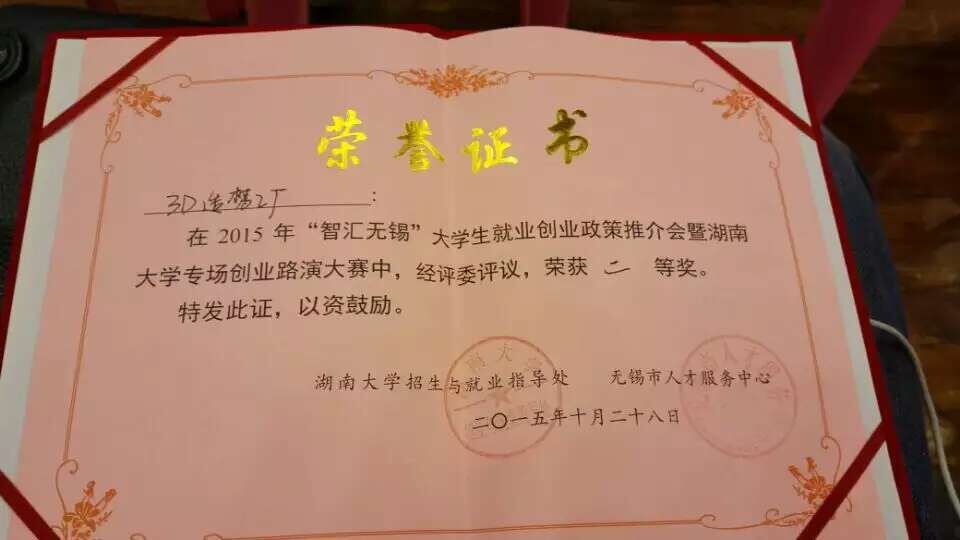 荣誉证书
3D造梦工厂：
在 2015 年“智汇无锡”大学生就业创业政策推介会暨湖南
大学专场创业路演大赛中，经评委评议，荣获 二 等奖。
特发此证，以资鼓励。
湖南大学招生与就业指导处 无锡市人才服务中心
二〇一五年十月二十八日